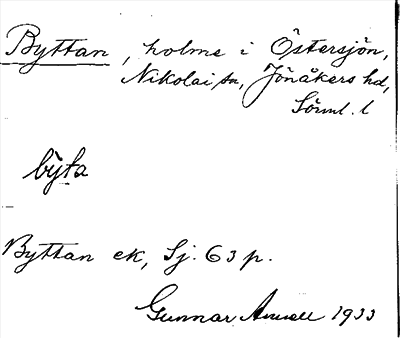 Byttan, holme i Östersjön,
Nikolai sn, Jönåkers hd,
Sörml. l
by̆ta
Byttan ek, Sj. 63 p.
Gunnar 1933